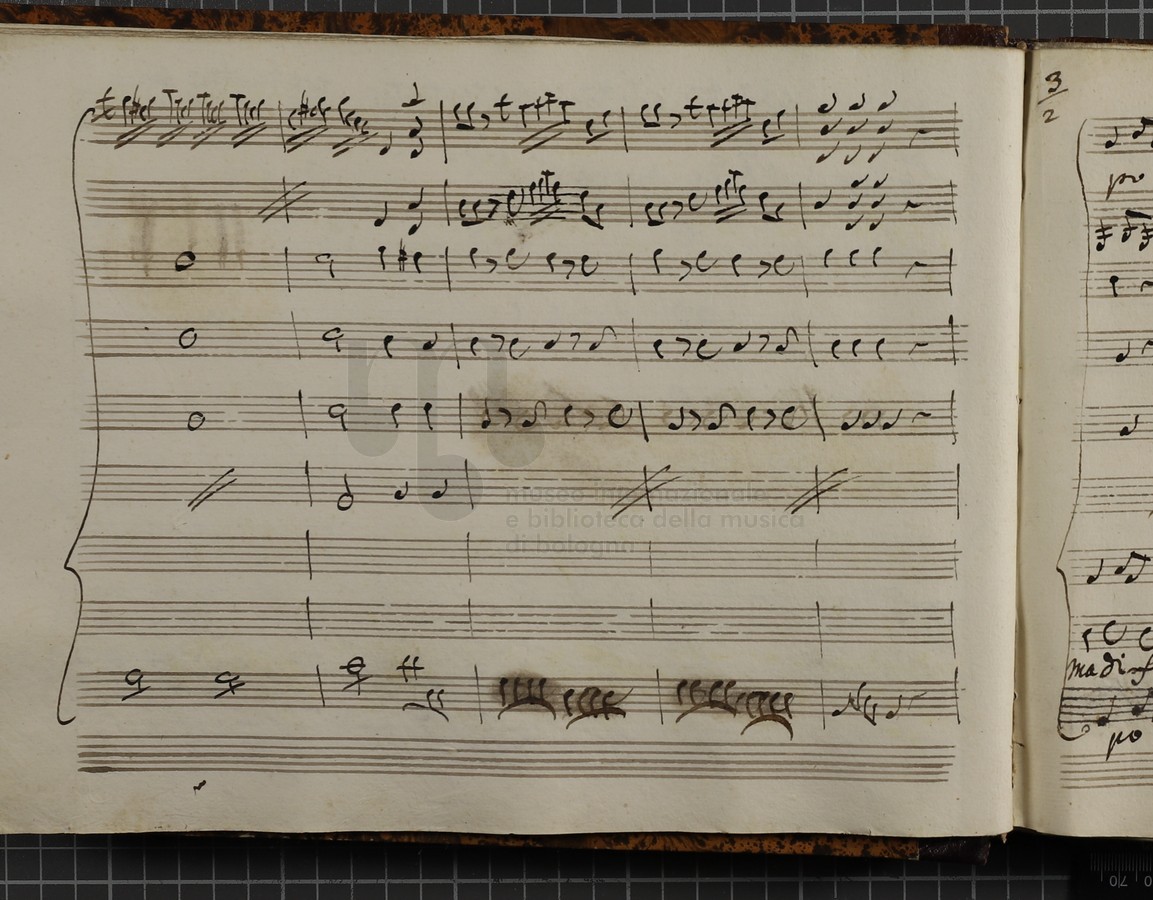 3
2
po
museo internazionale
e biblioteca della musica
di bologna
po
70